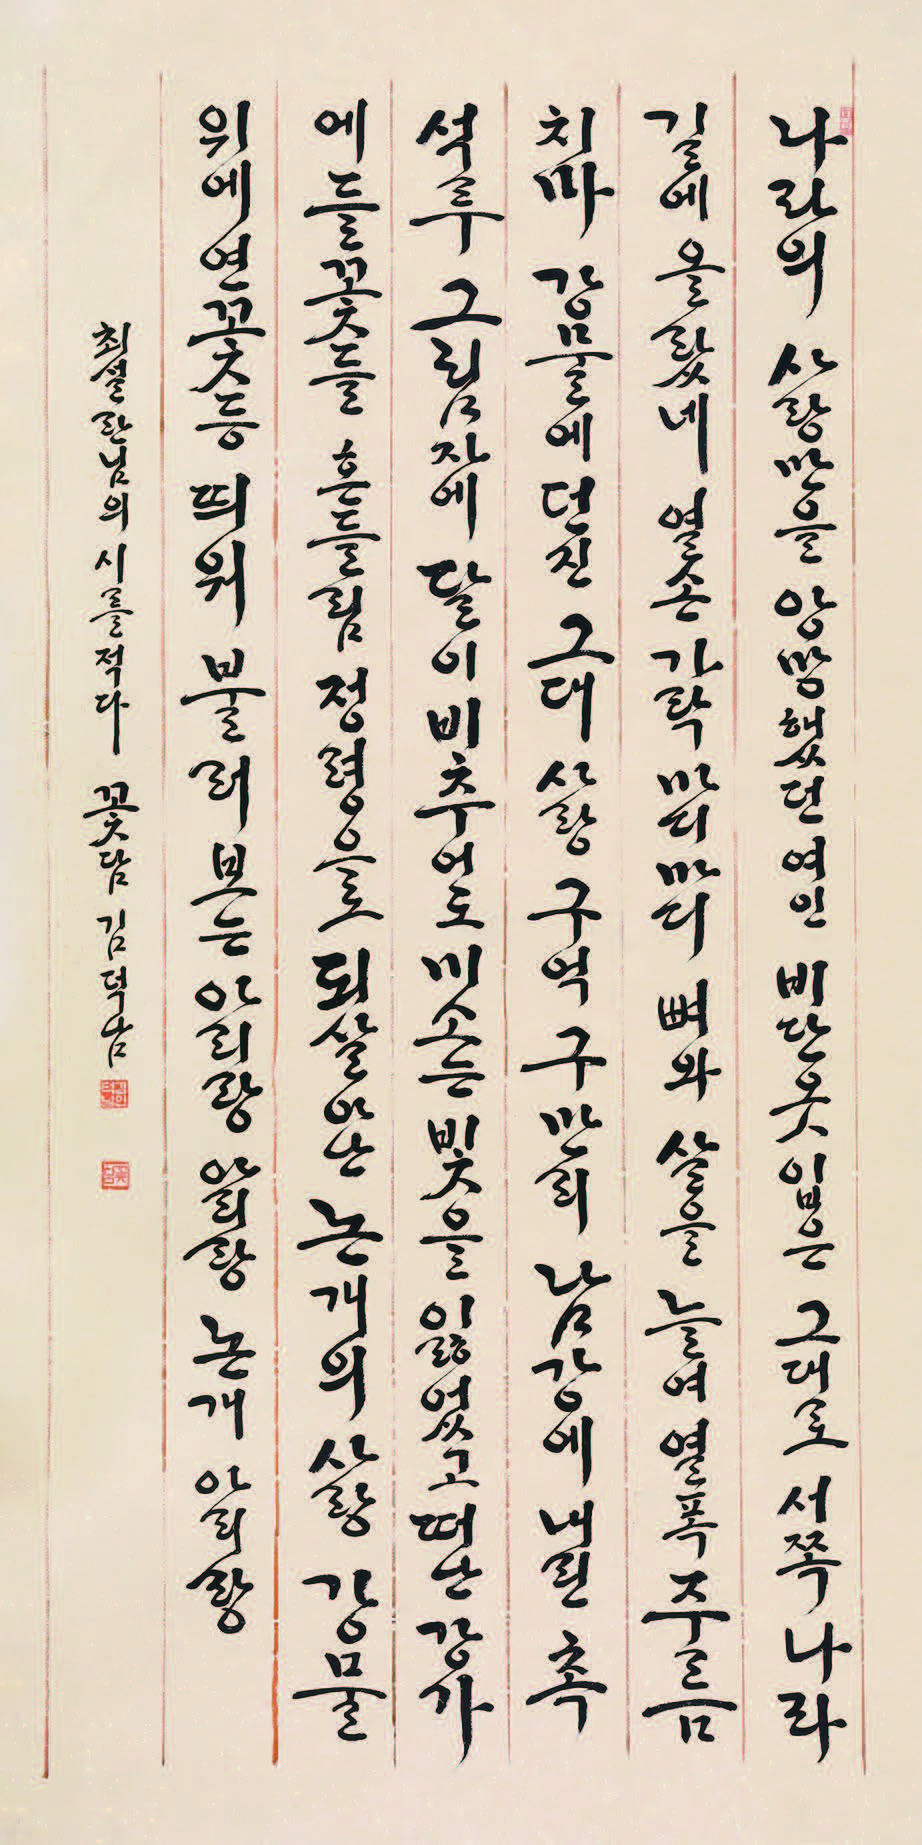 나라의 사랑만을 앙망했던 여인 비단옷 입은 그대로 서쪽 나라
길에 올랐네 열 손가락 마디마디 뼈와 살을 늘여 열폭 주름
치마 강물에 던진 그대 사랑 구억 구만리 남강에 내린 촉
석루 그림자에 달이 비추어도 미소는 빛을 잃었고 떠난 강가
에 들꽃들 흔들림 정령으로 되살아난 논개의 사랑 강물
위에 연꽃등 띄워 불러보는 아리랑 아리랑 논개 아리랑
최설란님의 시를 적다 꽃담 김덕남